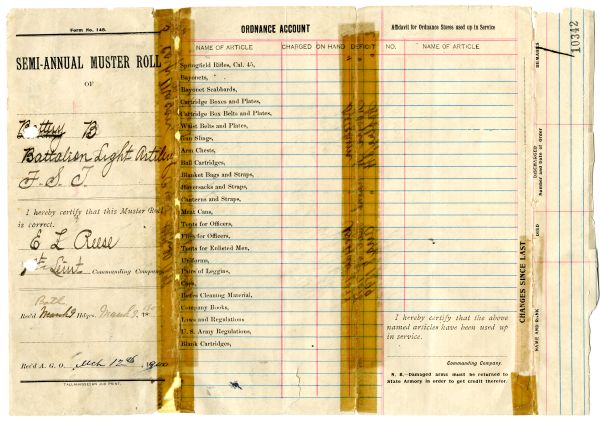 Form No. 148.
SEMI-ANNUAL MUSTER ROLL
OF
Battery B
Battalion Light Artillery
F. S. T.
I hereby certify that this Muster Roll
is correct.
E L Reese
1st Lieut Commanding Company.
Batl
Rec'd March 9 Hdqrs. March 9.
Rec'd A. G. O. Mch 12th 1900
TALLAHASSEEAN JOB PRINT.
ORDNANCE ACCOUNT
NAME OF ARTICLE CHARGED ON HAND DEFICIT
Springfield Rifles, Cal. 45,
Bayonets,
Bayonet Scabbards,
Cartridge Boxes and Plates,
Cartridge Box Belts and Plates,
Waist Belts and Plates,
Gun Slings,
Arm Chests,
Ball Cartridges,
Blanket Bags and Straps,
Haversacks and Straps,
Canteens and Straps,
Meat Cans,
Tents for Officers,
Flies for Officers,
Tents for Enlisted Men,
Uniforms,
Pairs of Leggins,
Caps,
Cleaning Material,
Company Books,
Laws and Regulations
U. S. Army Regulations,
Blank Cartridges,
Affidavit for Ordnance Stores used up in Service
NO. NAME OF ARTICLE
I hereby certify that the above
named articles have been used up
in service.
Commanding Company.
N. B.—Damaged arms must be returned to
State Armory in order to get credit therefor.
CHANGES SINCE LAST
NAME AND RANK
DISCHARGED
Number and Date of Order
REMARKS
10342